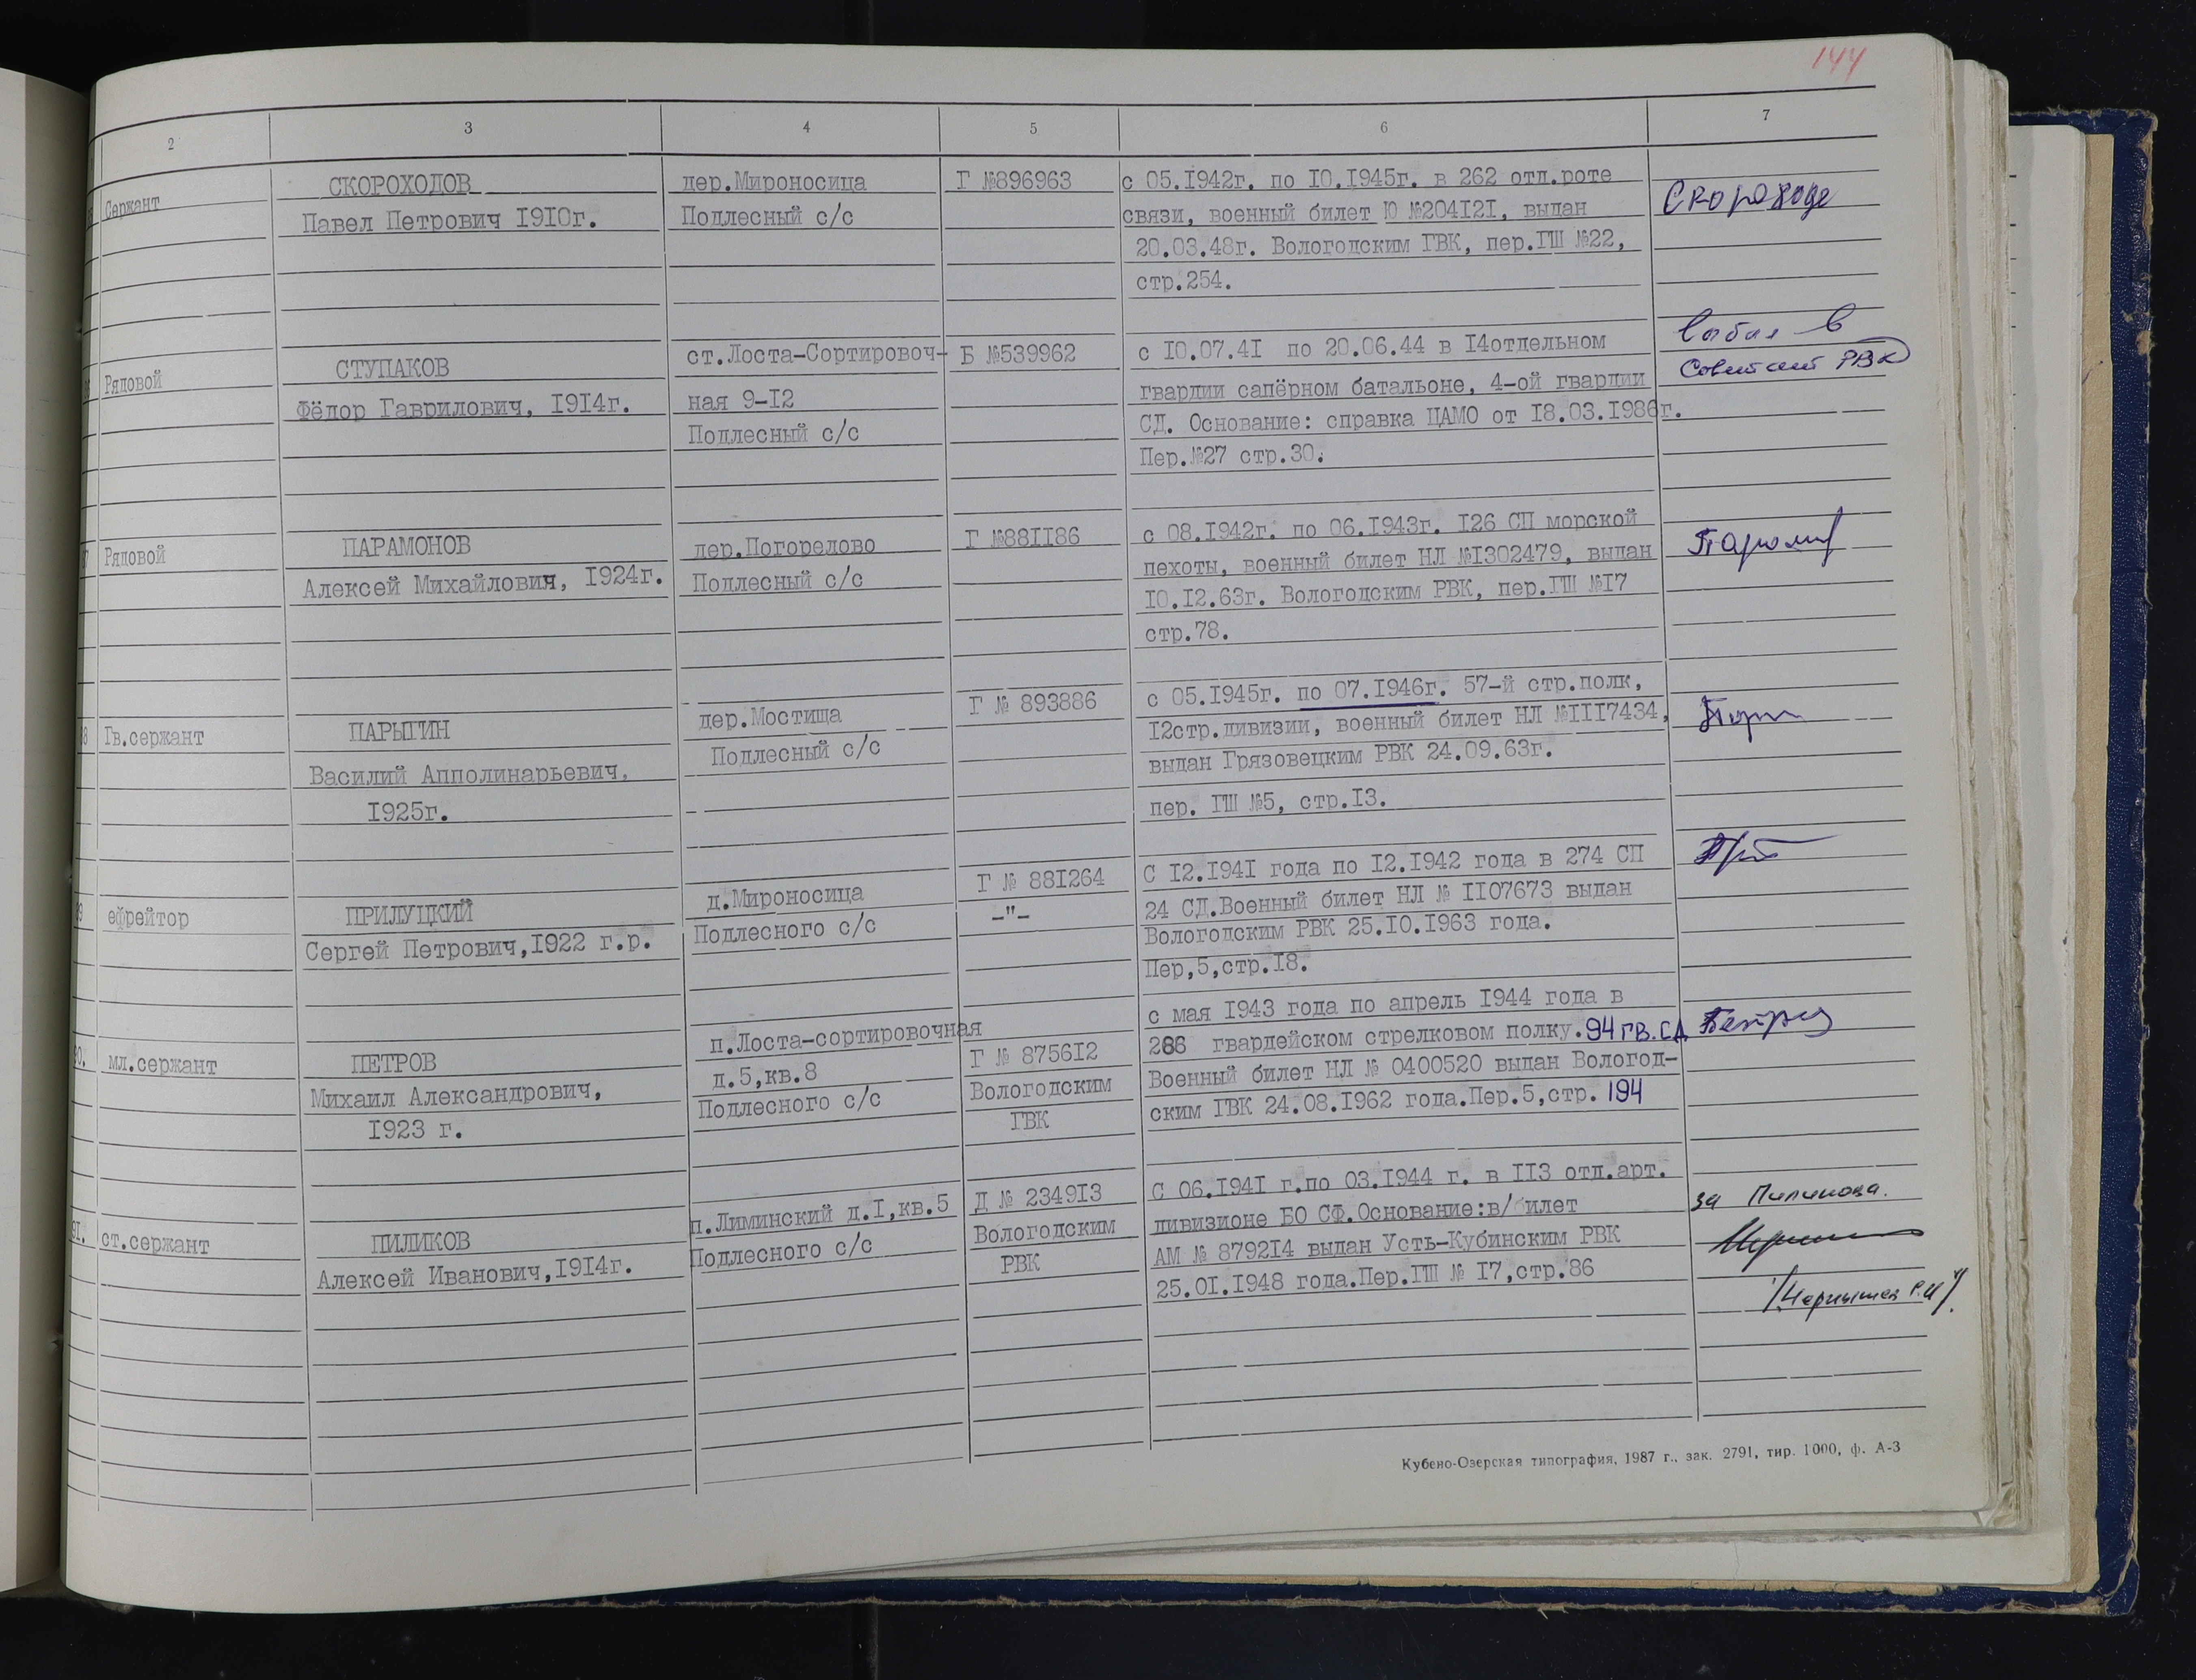 144
2 3 4 5 6 7
Сержант
СКОРОХОДОВ
Павел Петрович 1910г.
дер.Мироносица
Подлесный с/с
Г №896963
с 05.1942г. по 10.1945г. в 262 отд.роте
связи, военный билет Ю №204121, выдан
20.03.48г. Вологодским ГВК, пер.ГШ №22,
стр.254.
Скороходо
Рядовой
СТУПАКОВ
Фёдор Гаврилович, 1914г.
ст.Лоста-Сортировоч-
ная 9-12
Подлесный с/с
Б №539962
с 10.07.41 по 20.06.44 в 14отдельном
гвардии сапёрном батальоне, 4-ой гвардии
СД. Основание: справка ЦАМО от 18.03.1986г.
Пер.№27 стр.30.
выбыл в
Советский РВК
7
Рядовой
ПАРАМОНОВ
Алексей Михайлович, 1924г.
дер.Погорелово
Подлесный с/с
Г №881186
с 08.1942г. по 06.1943г. 126 СП морской
пехоты, военный билет НЛ №1302479, выдан
10.12.63г. Вологодским РВК, пер.ГШ №17
стр.78.
8
Гв.сержант
ПАРЫГИН
Василий Апполинарьевич,
1925г.
дер.Мостища
Подлесный с/с
Г № 893886
с 05.1945г. по 07.1946г. 57-й стр.полк,
12стр.дивизии, военный билет НЛ №1117434,
выдан Грязовецким РВК 24.09.63г.
пер. ГШ №5, стр.13.
9
ефрейтор
ПРИЛУЦКИЙ
Сергей Петрович,1922 г.р.
д.Мироносица
Подлесного с/с
Г № 881264
-"-
С 12.1941 года по 12.1942 года в 274 СП
24 СД.Военный билет НЛ № 1107673 выдан
Вологодским РВК 25.10.1963 года.
Пер,5,стр.18.
0.
мл.сержант
ПЕТРОВ
Михаил Александрович,
1923 г.
п.Лоста-сортировочная
д.5,кв.8
Подлесного с/с
Г № 875612
Вологодским
ГВК
с мая 1943 года по апрель 1944 года в
286 гвардейском стрелковом полку.94 гв.СД
Военный билет НЛ № 0400520 выдан Вологод-
ским ГВК 24.08.1962 года.Пер.5,стр. 194
91.
ст.сержант
ПИЛИКОВ
Алексей Иванович,1914г.
п.Лиминский д.1,кв.5
Подлесного с/с
Д № 234913
Вологодским
РВК
С 06.1941 г.по 03.1944 г. в 113 отд.арт.
дивизионе БО СФ.Основание:в/билет
АМ № 879214 выдан Усть-Кубинским РВК
25.01.1948 года.Пер.ГШ № 17,стр.86
за Пиликова.
Кубено-Озерская типография, 1987 г., зак. 2791, тир. 1000, ф. А-3